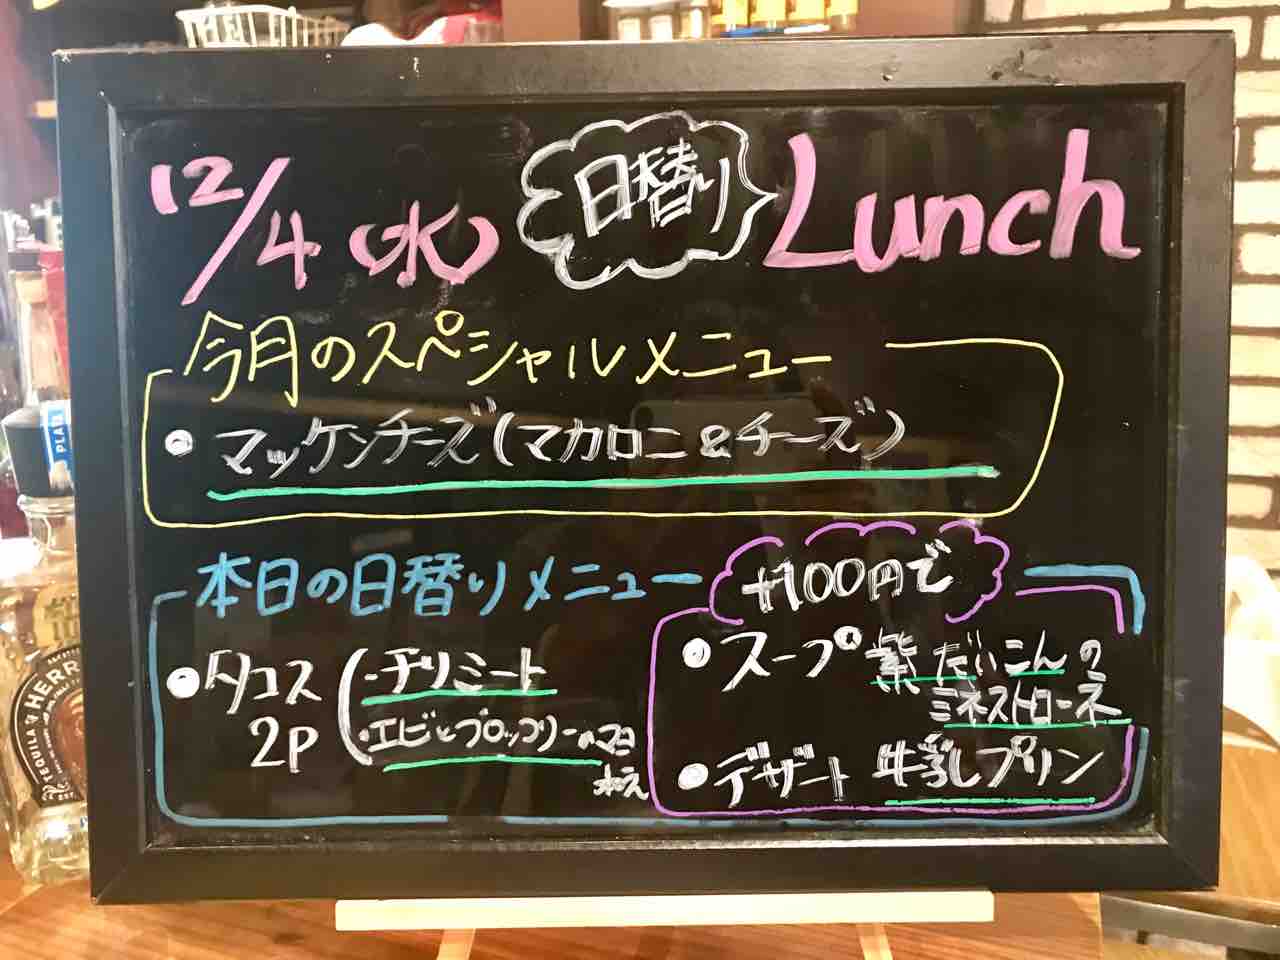 12/4(水) 日替り Lunch
今月のスペシャルメニュー
• マッケンチーズ(マカロニ&チーズ)
本日の日替りメニュー
• タコス 2P
・チリミート
・エビとブロッコリーのマヨ和え
+100円で
• スープ 紫だいこんの
ミネストローネ
• デザート 牛乳プリン
PLAT
HERR
TEQUILA